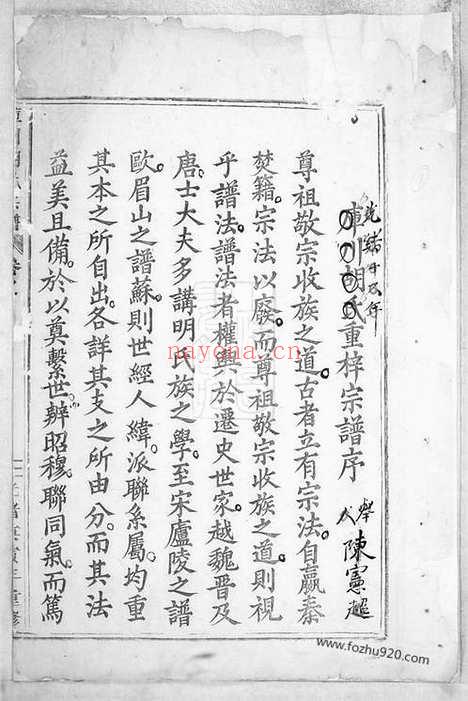 光緒十五年
庫川胡氏重梓宗譜序
舉人陳憲超
尊祖敬宗收族之道古者立有宗法自嬴秦
焚籍宗法以廢而尊祖敬宗收族之道則視
乎譜法譜法者權輿於遷史世家越魏晉及
唐士大夫多講明氏族之學至宋廬陵之譜
歐眉山之譜蘇則世經人緯派聯系屬均重
其本之所自出各詳其支之所由分而其法
益美且備於以奠繫世辨昭穆聯同氣而篤
nayona.cn
www.fozhu920.com